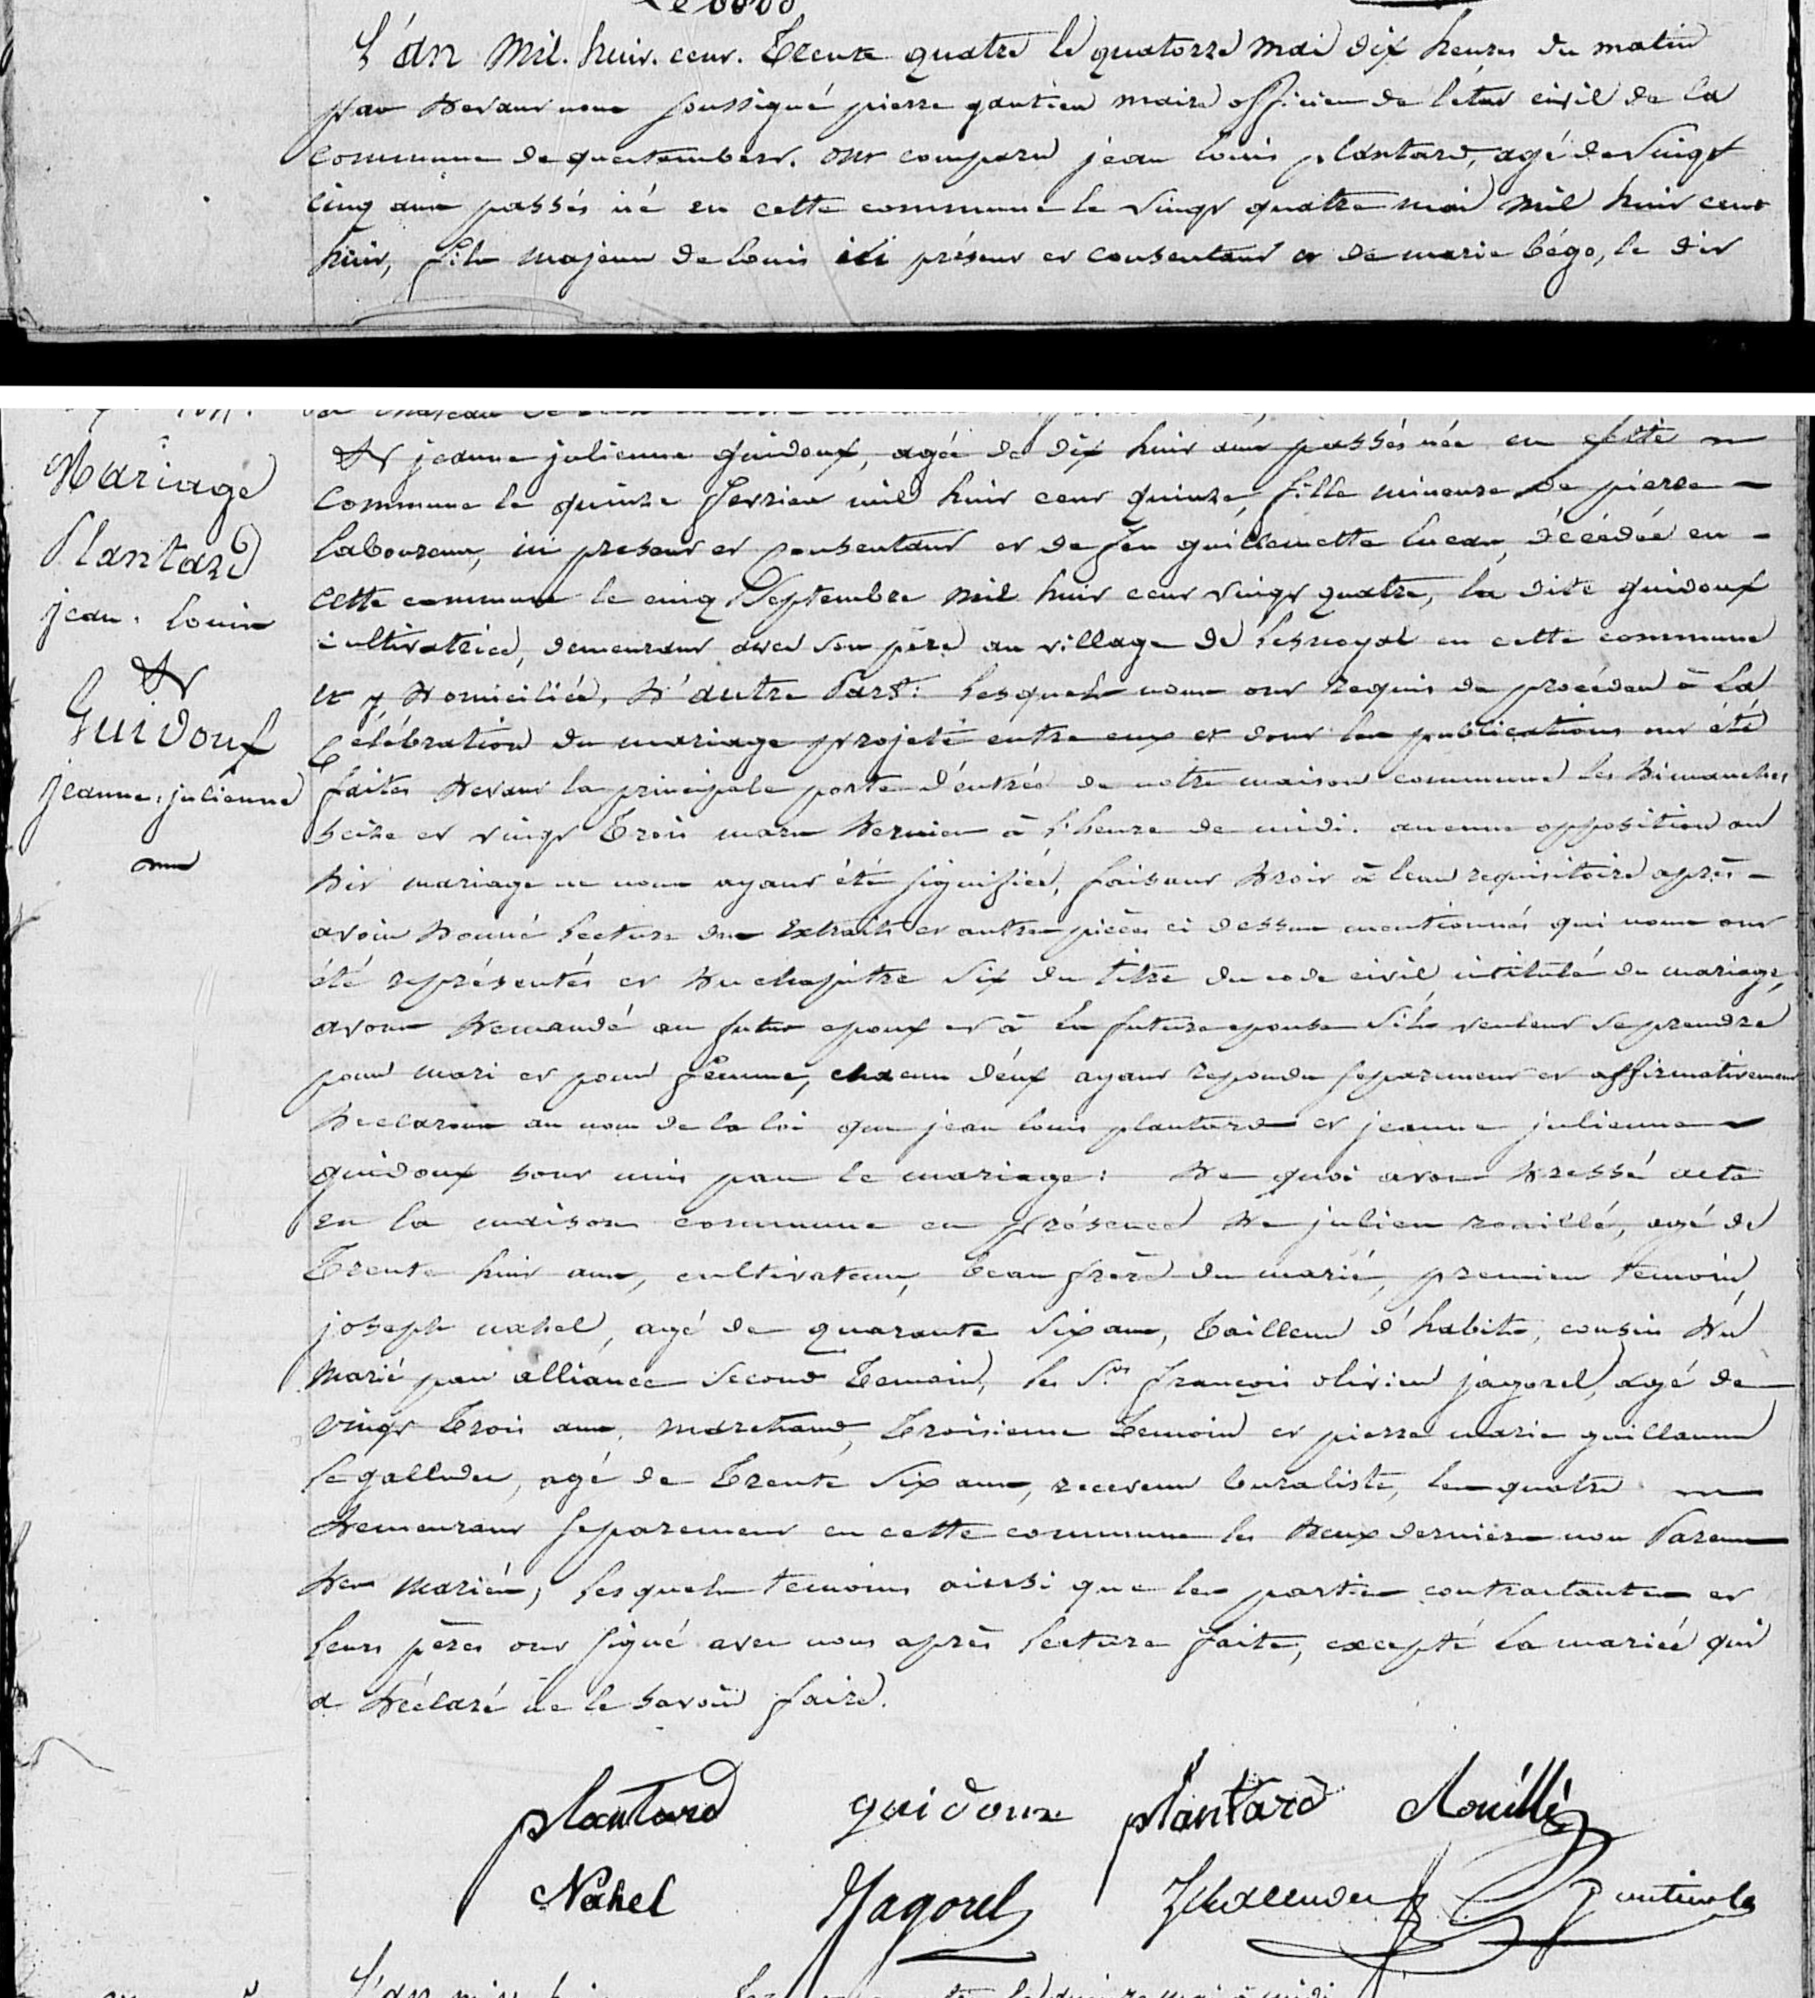 L'an mil huit cent trente quatre le quatorze mai dix heures du matin
par devant nous soussigné pierre gautier maire officier de l'état civil de la
commune de questembert, ont comparu jean louis plantard, agé de vingt
cinq ans passés né en cette commune le vingt quatre mai mil huit cent
huit, fils majeur de louis ici présent et consentant et de marie bégo, le dit
Mariage
Plantard
jean louis
Et
Guidoux
jeanne julienne
Et jeanne julienne guidoux, agée de dix huit ans passés née en cette
commune le quinze fevrier mil huit cent quinze, fille mineure de pierre
laboureur, ici present et consentant et de feu guillemette lucas, décédée en
cette commune le cinq septembre mil huit cent vingt quatre, la dite guidoux
cultivatrice, demeurant avec son père au village de lesnoyal en cette commune
et y domiciliée, d'autre part: lesquels nous ont requis de procéder à la
célébration du mariage projeté entre eux et dont les publications ont été
faites devant la principale porte d'entrée de notre maison commune les dimanches
seize et vingt trois mars dernier à l'heure de midi. aucune opposition au
dit mariage ne nous ayant été signifiée, faisant droit à leur requisitoire après
avoir donné lecture des extraits et autres pièces ci dessus mentionnés qui nous ont
été représentés et du chapitre six du titre du code civil intitulé du mariage,
avons demandé au futur epoux et à la future epouse s'ils veulent se prendre
pour mari et pour femme, chacun d'eux ayant repondu separement et affirmativement
declarons au nom de la loi que jean louis plantard et jeanne julienne
guidoux sont unis par le mariage: de quoi avons dressé acte
en la maison commune en présence de julien rouillé, agé de
trente huit ans, cultivateur, beau frère du marié, premier temoin,
joseph nahel, agé de quarante six ans, tailleur d'habits, cousin du
marié par alliance second temoin, les Srs françois olivier jagorel, agé de
vingt trois ans, marchand, troisieme temoin et pierre marie guillaume
le galludec, agé de trente six ans, receveur buraliste, les quatre
demeurant separement en cette commune les deux derniers non parens
des mariés, lesquels temoins ainsi que les parties contractantes et
leurs pères ont signé avec nous après lecture faite, excepté la mariée qui
a déclaré ne le savoir faire.
plantard guidoux plantard Rouillé
Nahel Jagorel